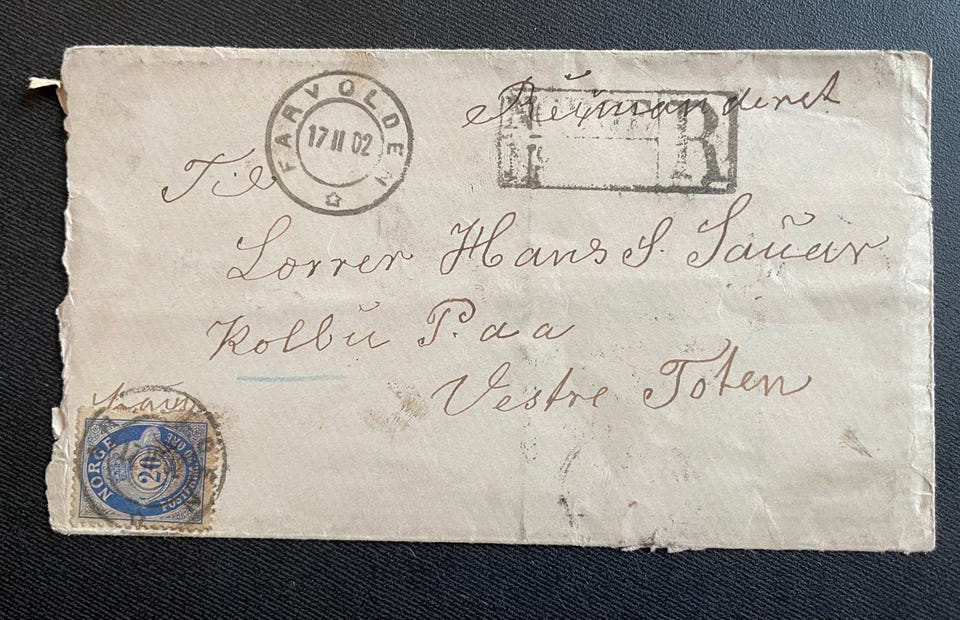 FARVOLDEN
17 II 02
Rekomanderet
R
Til
Lærrer Hans S. Sauar
Kolbu P. aa
Vestre Toten
NORGE
20